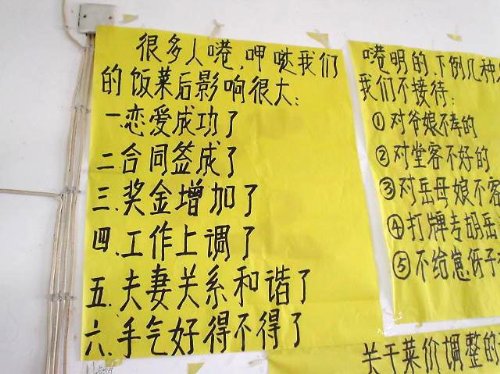 很多人嗯.呷哒我们
的饭菜后影响很大:
一恋爱成功了
二合同签成了
三.奖金增加了
四.工作上调了
五.夫妻关系和谐了
六.手气好得不得了
嗯明的.下例几种
我们不接待:
①对爷娘不孝的
②对堂客不好的
③对岳母娘不客
④打牌专胡岳
⑤不给崽伢子
关于菜价调整的